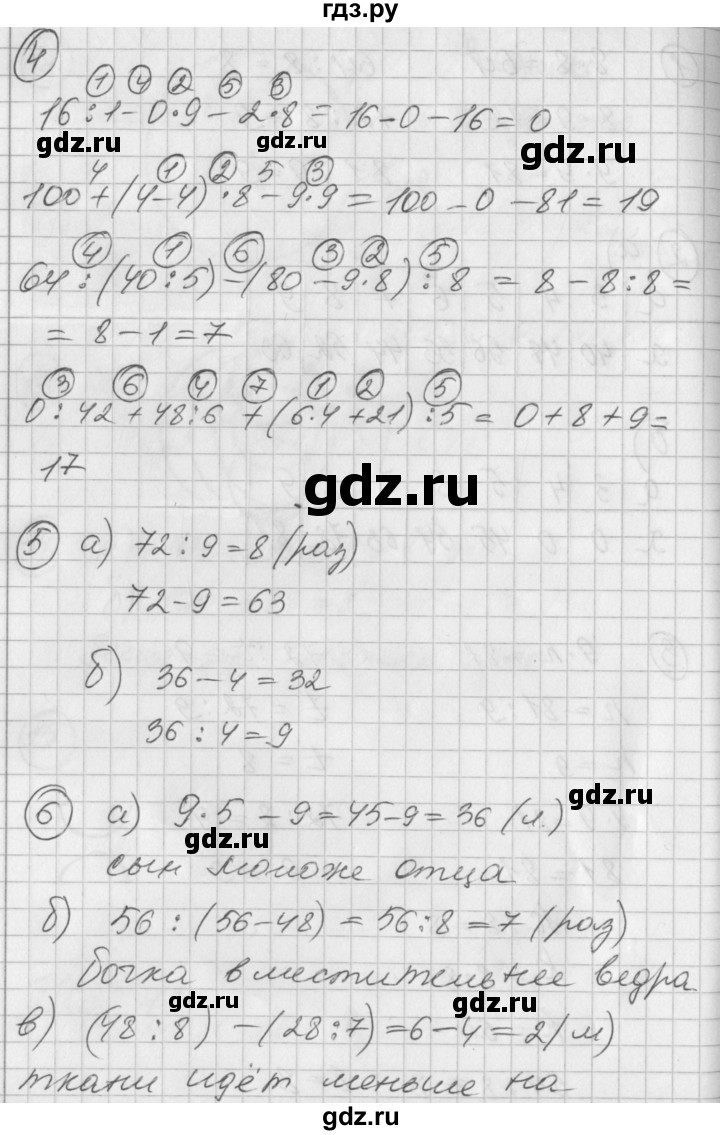 гдз.ру
4
1 4 2 5 3
16:1-0·9-2·8=16-0-16=0
gdz.ru gdz.ru gdz.ru
4 1 2 5 3
100+(4-4)·8-9·9=100-0-81=19
4 1 6 3 2 5
64:(40:5)-(80-9·8):8=8-8:8=
=8-1=7
3 6 4 7 1 2 5
0:42+48:6+(6·4+21):5=0+8+9=
17
gdz.ru
5 а) 72:9=8(раз)
72-9=63
б) 36-4=32
36:4=9
gdz.ru
6 а) 9·5-9=45-9=36(л.)
gdz.ru
сын моложе отца
б) 56:(56-48)=56:8=7(раз)
бочка вместительнее ведра
gdz.ru gdz.ru
в) (48:8)-(28:7)=6-4=2(м)
ткани идёт меньше на
gdz.ru